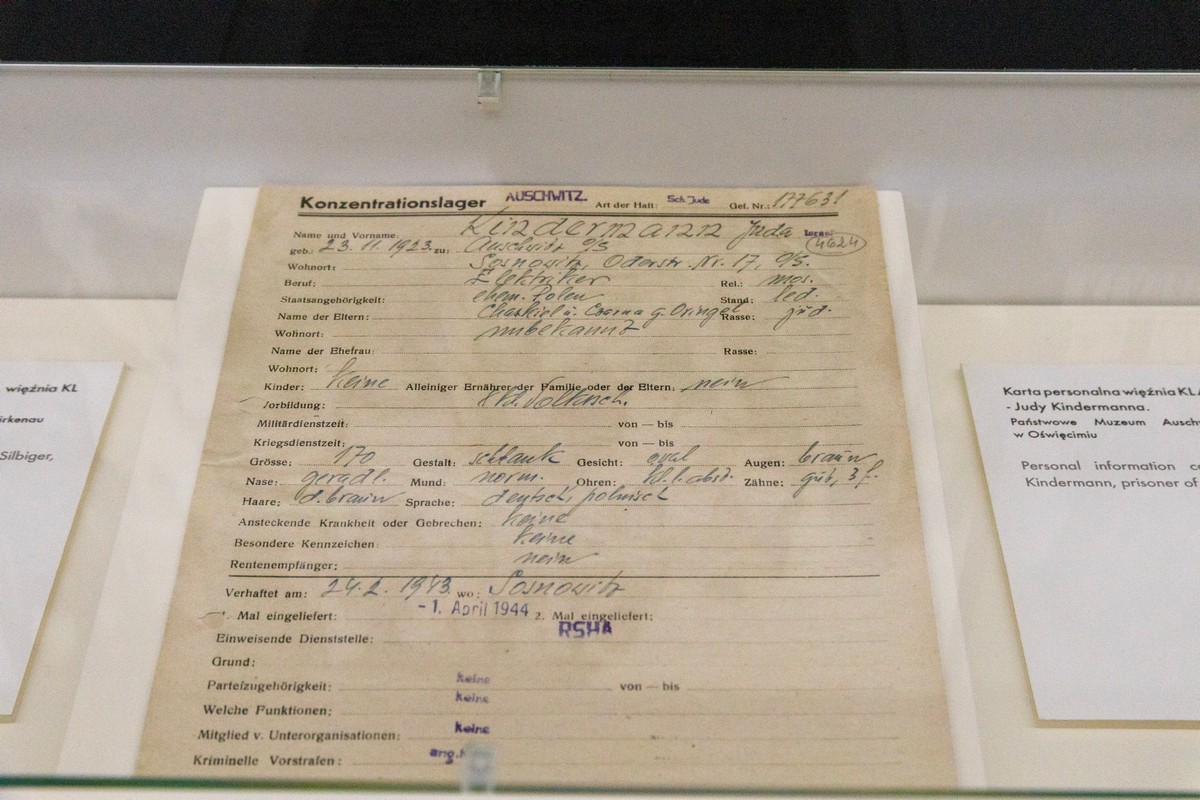 Konzentrationslager AUSCHWITZ. Art der Haft: Sch. Jude Gef. Nr.: 177631
Name und Vorname: Kindermann Juda Israel
geb.: 23. 11. 1923. zu: Auschwitz O/S 4624
Wohnort: Sosnowitz, Oderstr. Nr. 17, O/S.
Beruf: Elektriker Rel.: mos.
Staatsangehörigkeit: ehem. Polen Stand: led.
Name der Eltern: Chaskiel u. Czarna g. Oringel Rasse: jüd.
Wohnort: unbekannt
Name der Ehefrau: Rasse:
Wohnort:
Kinder: keine Alleiniger Ernährer der Familie oder der Eltern: nein
Vorbildung: Volkssch.
Militärdienstzeit: von — bis
Kriegsdienstzeit: von — bis
Grösse: 170 Gestalt: schlank Gesicht: oval Augen: braun
Nase: geradl. Mund: norm. Ohren: abst. Zähne: gut, 3 f.
Haare: d. braun Sprache: deutsch, polnisch
Ansteckende Krankheit oder Gebrechen: keine
Besondere Kennzeichen: keine
Rentenempfänger: nein
Verhaftet am: 24. 2. 1943 wo: Sosnowitz
1. Mal eingeliefert: -1. April 1944 2. Mal eingeliefert:
Einweisende Dienststelle: RSHA
Grund:
Parteizugehörigkeit: keine von — bis
Welche Funktionen: keine
Mitglied v. Unterorganisationen: keine
Kriminelle Vorstrafen: ang.
więźnia KL
irkenau
Silbiger,
Karta personalna więźnia KL
- Judy Kindermanna.
Państwowe Muzeum
w Oświęcimiu
Personal information
Kindermann, prisoner of